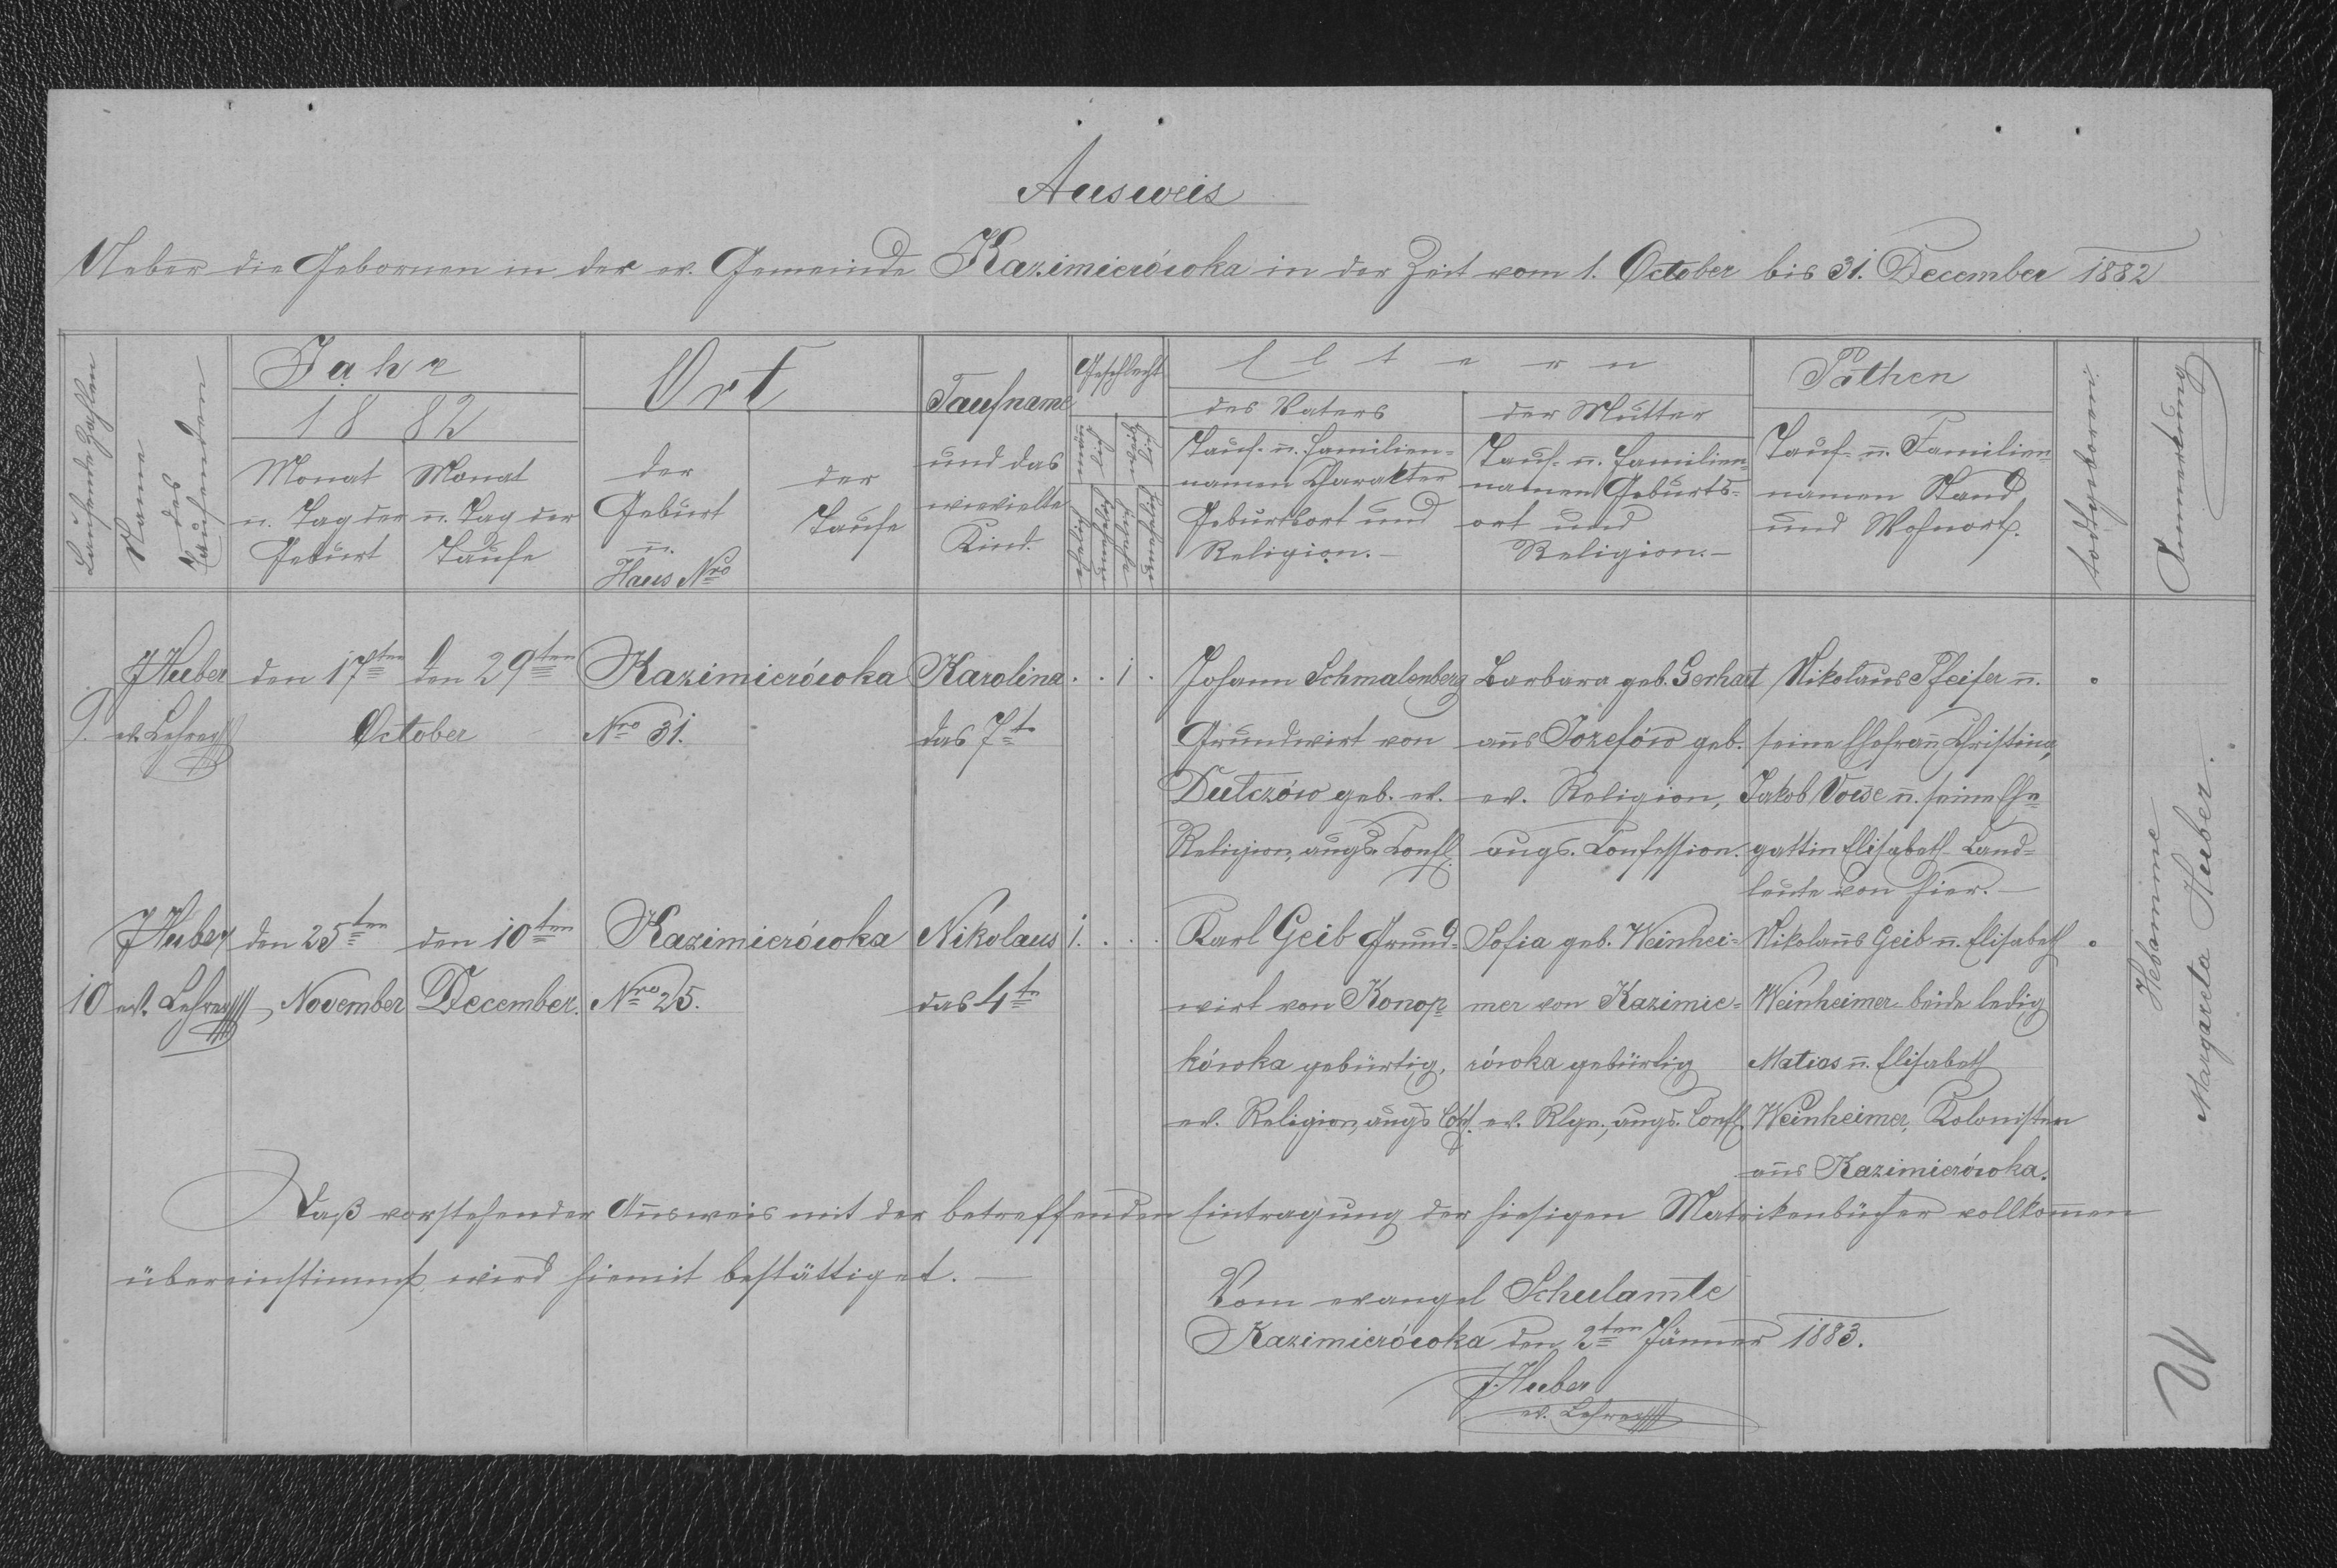 Ausweis
Ueber die Gebornen in der ev. Gemeinde Kazimierówka in der Zeit vom 1. October bis 31. December 1882
Laufende Zahlen
Name
des
Taufenden
Jahr
1882
Monat
u. Tag der
Geburt
Monat
u. Tag der
Taufe
Ort
der
Geburt
u.
Haus Nro
der
Taufe
Taufname
und das
wievielte
Kind.
Geschlecht
Eltern
des Vaters
Tauf- u. Familien-
namen Charakter
Geburtsort und
Religion.-
der Mutter
Tauf- u. Familien-
namen Geburts-
ort und
Religion.-
Pathen
Tauf- u. Familien-
namen Stand
und Wohnort.
todtgeboren
Anmerkung
9.
JHuber
ev. Lehrer
den 17ten
den 29ten
October
Kazimierówka
Nro 31.
Karolina
das 7te
. . 1 .
Johann Schmalenberg
Grundwirt von
Dutczów geb. ev.
Religion, augs. Conf.
Barbara geb. Gerhart
aus Jozefów geb.
ev. Religion,
augs. Confession.
Nikolaus Pfeifer u.
seine Ehefrau Christina,
Jakob u. seine Ehe-
gattin Elisabeth Land-
leute von hier.-
10
JHuber
ev. Lehrer
den 25ten
November
den 10ten
December.
Kazimierówka
Nro 25.
Nikolaus
das 4te
1. . . .
Karl Geib Grund-
wirt von Konop-
kówka gebürtig,
ev. Religion, augs Conf.
Sofia geb. Weinhei-
mer von Kazimie-
rówka gebürtig
ev. Rlgn., augs. Conf.
Nikolaus Geib u. Elisabeth
Weinheimer beide ledig
Matias u. Elisabeth
Weinheimer, Kolonisten
aus Kazimierówka.
Hebamme
Margareta Huber.
Daß vorstehender Ausweis mit der betreffenden Eintragung der hiesigen Matrikenbücher vollkommen
übereinstimmt, wird hiemit bestättiget.-
Vom evangel Schulamte
Kazimierówka den 2ten Jänner 1883.
J. Huber
ev. Lehrer